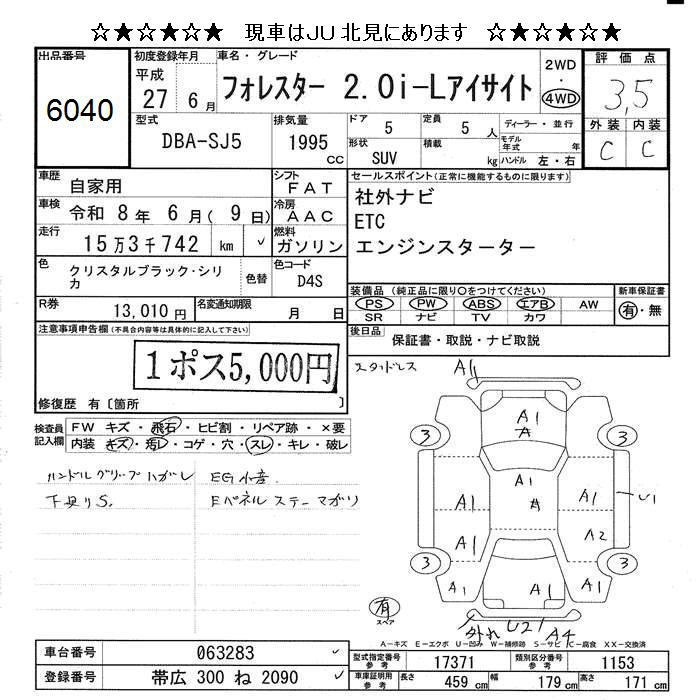 ☆★☆★☆★ 現車はJU北見にあります ☆★☆★☆★
出品番号
6040
初度登録年月
平成
27 6月
車名・グレード
フォレスター 2.0i-Lアイサイト
2WD
・
4WD
評価点
3,5
外装 内装
C C
型式
DBA-SJ5
排気量
1995
cc
ドア
5
定員
5 人
形状
SUV
積載
kg
ディーラー・並行
モデル年式 年
ハンドル 左・右
車歴
自家用
シフト
FAT
車検
令和 8年 6月( 9日)
冷房
AAC
走行
15万3千742 km ✓
燃料
ガソリン
色
クリスタルブラック・シリカ
色替
色コード
D4S
R券
13,010円
名変通知期限
月 日
セールスポイント(正常に機能するものに限ります)
社外ナビ
ETC
エンジンスターター
装備品 (純正品に限り○をつけてください)
PS PW ABS エアB AW
SR ナビ TV カワ
新車保証書
有・無
後日品
保証書・取説・ナビ取説
注意事項申告欄(不具合内容等は具体的に記入して下さい)
1ポス5,000円
修復歴 有〔箇所 〕
検査員記入欄
FW キズ・飛石・ヒビ割・リペア跡・×要
内装 キズ・汚レ・コゲ・穴・スレ・キレ・破レ
ハンドルグリップハガレ
下回りS.
EG水音
Eパネルステーマガリ
スタッドレス
A1
A1
A
3
3
A1
A1
A
A1
U1
A1
A2
3
3
A1
A1
A1
有
スペア
外れ U21 A4
A-キズ E-エクボ U-凹み W-補修跡 S-サビ C-腐食 XX-交換済
車台番号
063283 ✓
登録番号
帯広 300 ね 2090 ✓
型式指定番号
参考
17371
類別区分番号
参考
1153
車庫証明用
参考
長さ 459 cm
幅 179 cm
高さ 171 cm